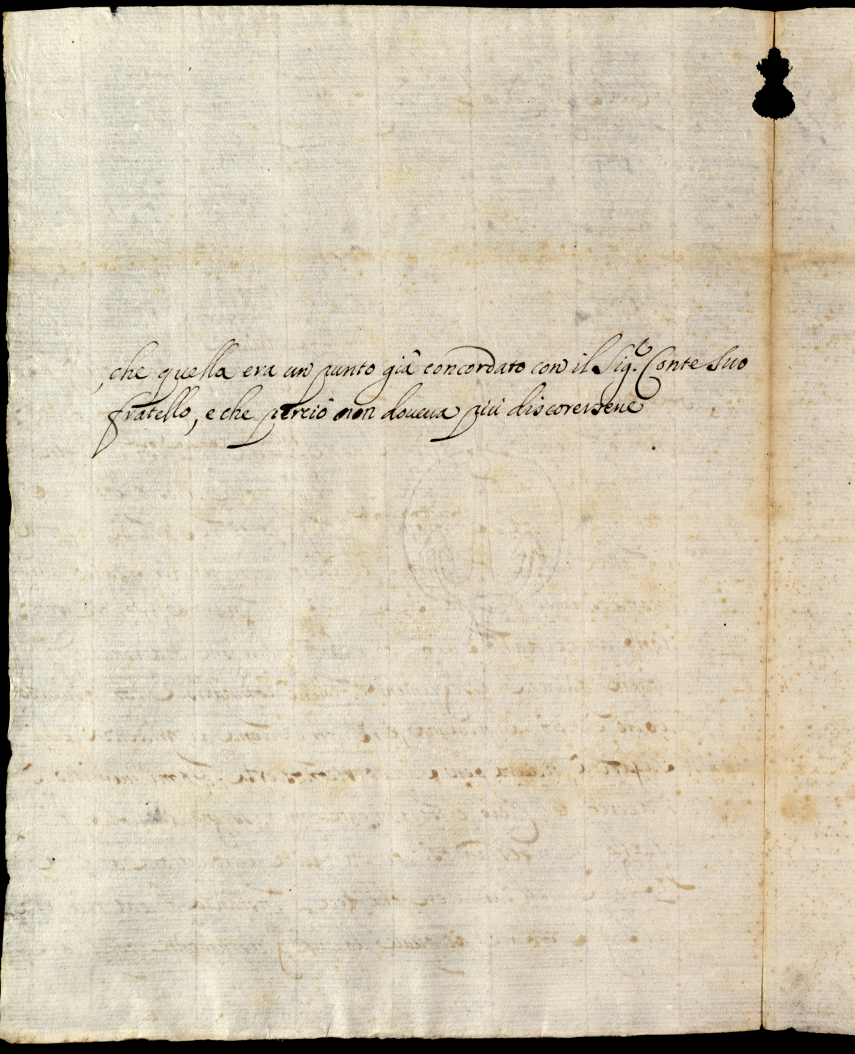 , che quella era un punto già concordato con il Sig.r Conte suo
fratello, e che perciò non doueua più discorersene